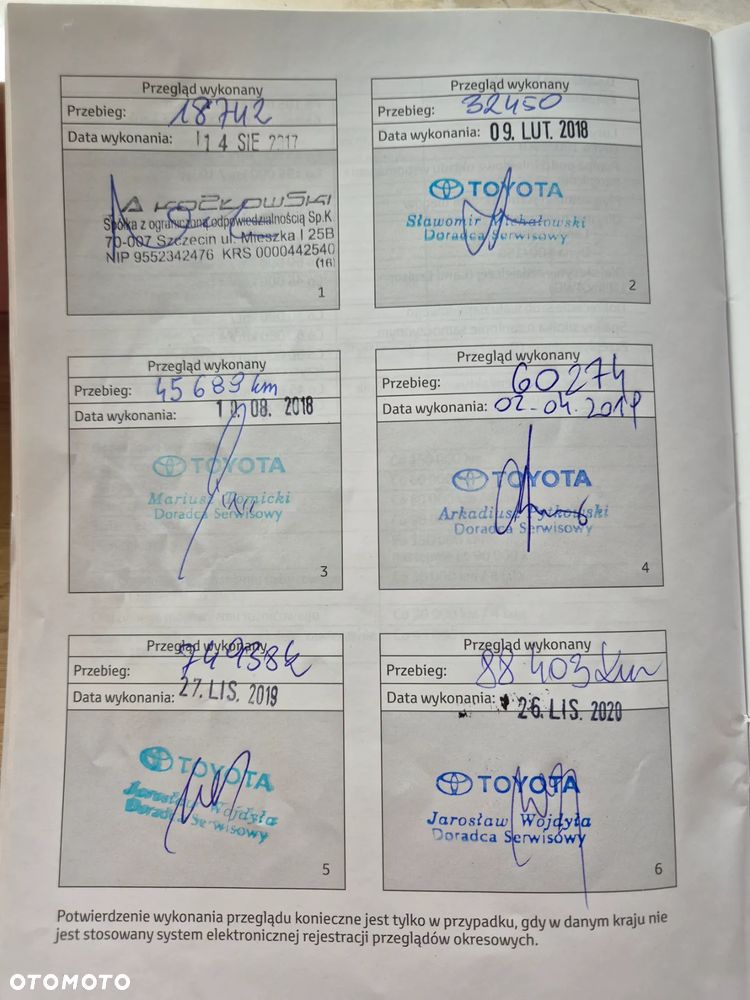 Przegląd wykonany
Przebieg: 18742
Data wykonania: 14 SIE 2017
A KOZŁOWSKI
Spółka z ograniczoną odpowiedzialnością Sp.K
70-007 Szczecin ul. Mieszka I 25B
NIP 9552342476 KRS 0000442540
(16)
1
Przegląd wykonany
Przebieg: 32450
Data wykonania: 09. LUT. 2018
TOYOTA
Sławomir Michałowski
Doradca Serwisowy
2
Przegląd wykonany
Przebieg: 45689 km
Data wykonania: 08. 2018
TOYOTA
Mariusz
Doradca Serwisowy
3
Przegląd wykonany
Przebieg: 60274
Data wykonania: 02-04.2019
TOYOTA
Arkadiusz Pytkowski
Doradca Serwisowy
4
Przegląd wykonany
Przebieg: 74938k
Data wykonania: 27. LIS. 2019
TOYOTA
Jarosław Wojdyła
Doradca Serwisowy
5
Przegląd wykonany
Przebieg: 88 403 km
Data wykonania: 26. LIS. 2020
TOYOTA
Jarosław Wojdyła
Doradca Serwisowy
6
Potwierdzenie wykonania przeglądu konieczne jest tylko w przypadku, gdy w danym kraju nie
jest stosowany system elektronicznej rejestracji przeglądów okresowych.
OTOMOTO